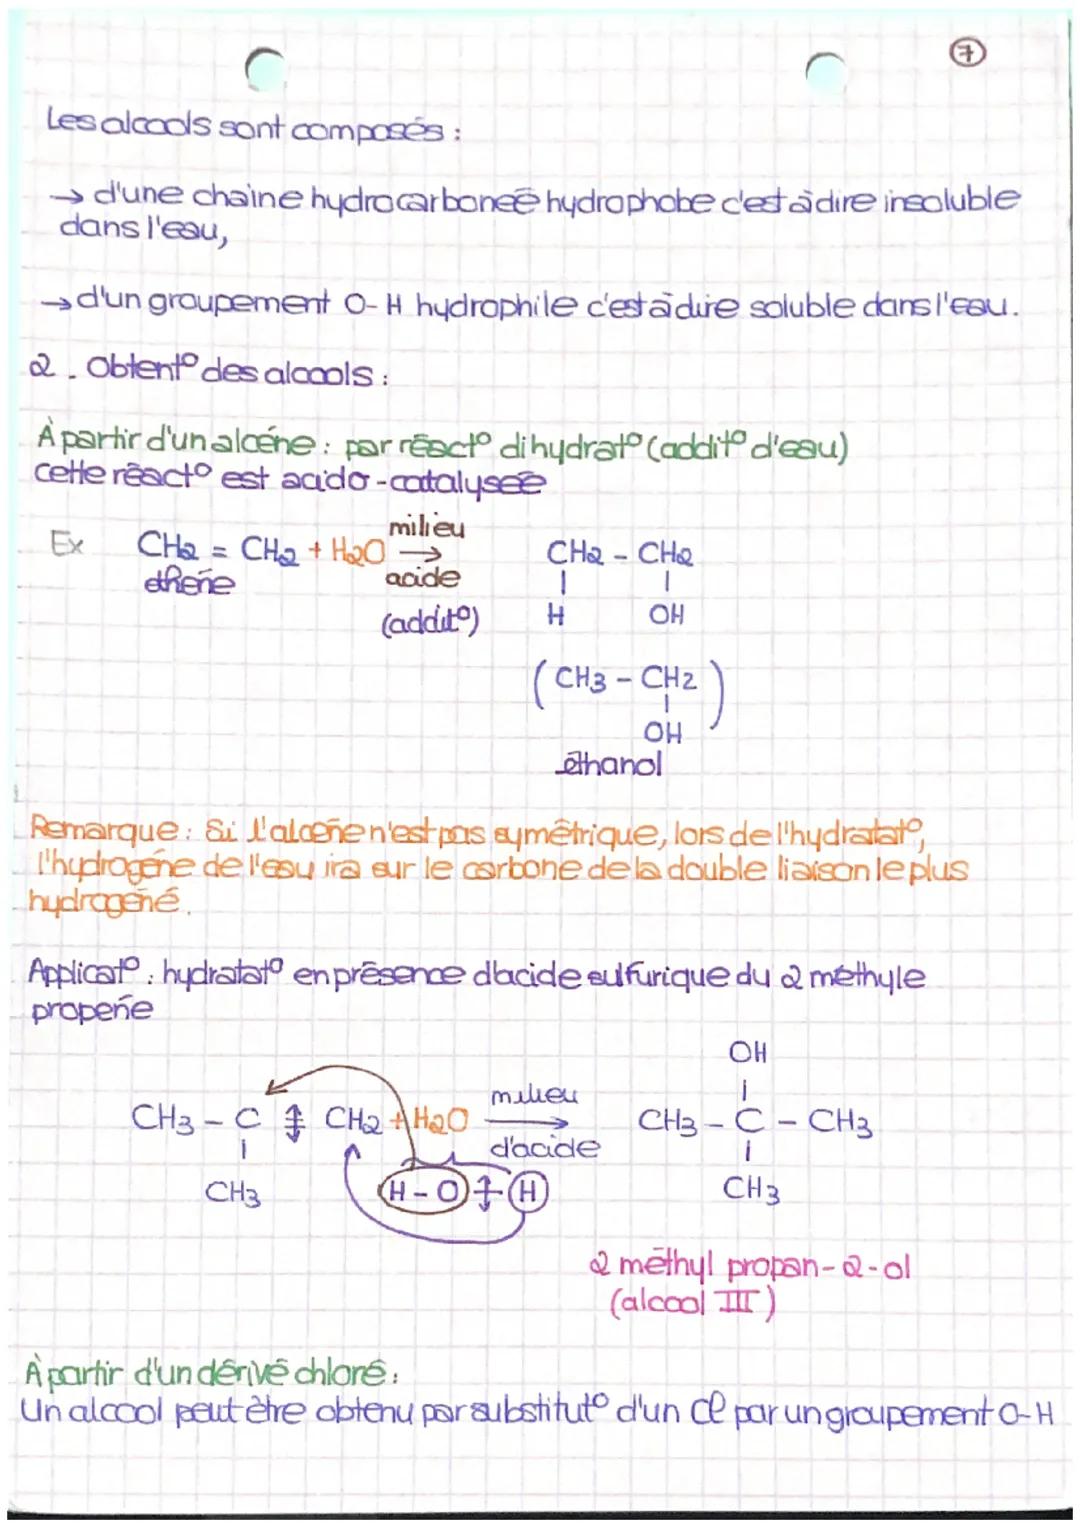 7
Les alcools sont composés :
→ d'une chaîne hydrocarbonée hydrophobe c'est à dire insoluble
dans l'eau,
→ d'un groupement O-H hydrophile c'est à dire soluble dans l'eau.
2. Obtent° des alcools :
À partir d'un alcène : par réact° d'hydrat° (addit° d'eau)
cette réact° est acido-catalysée
Ex CH2 = CH2 + H2O milieu → acide (addit°) CH2 - CH2
éthène
H OH
(CH3 - CH2)
OH
éthanol
Remarque : Si l'alcène n'est pas symétrique, lors de l'hydratat°,
l'hydrogène de l'eau ira sur le carbone de la double liaison le plus
hydrogéné.
Applicat° : hydratat° en présence d'acide sulfurique du 2 méthyle
propène
OH
CH3 - C = CH2 + H2O milieu → d'acide CH3 - C - CH3
CH3 H - O H CH3
2 méthyl propan-2-ol
(alcool III)
À partir d'un dérivé chloré :
Un alcool peut être obtenu par substitut° d'un Cl par un groupement O-H